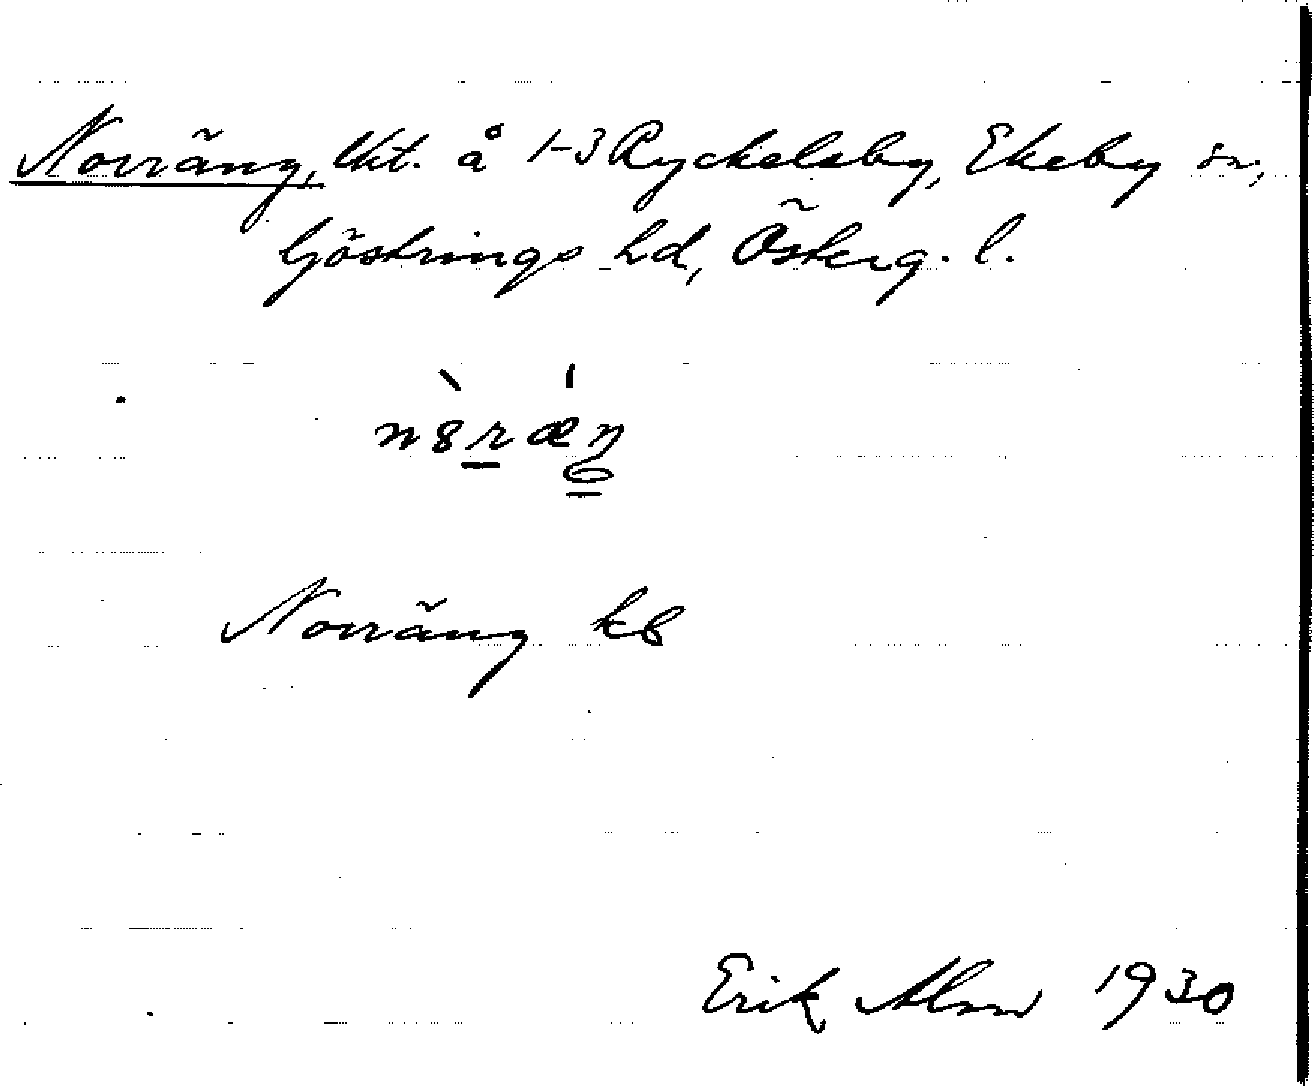 Norräng, lht. å 1-3 Ryckelsby, Ekeby sn,
Göstrings hd, Österg. l.
Norräng kb
Erik Alm 1930